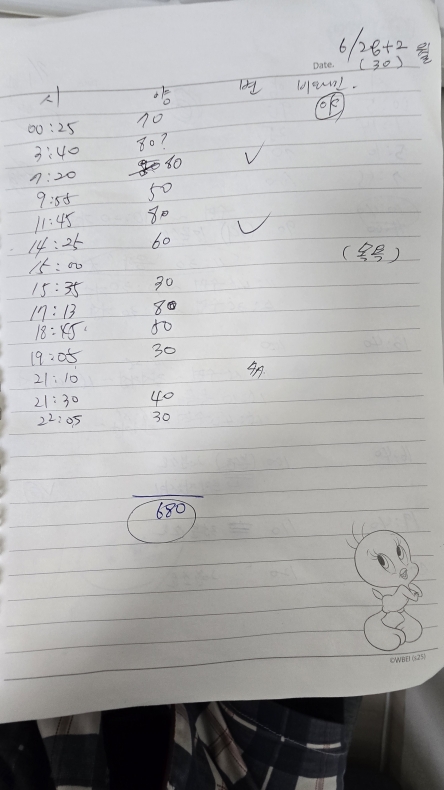 6/28+2 월
Date. (30)
시 양 변 비타민.
OK
00:25 70
3:40 80?
7:20 80 ✓
9:55 50
11:45 80
14:25 60 ✓
15:00 (목욕)
15:35 30
17:13 80
18:45
19:05 30
21:10
21:30 40
22:05 30
680
©WBEI (s25)